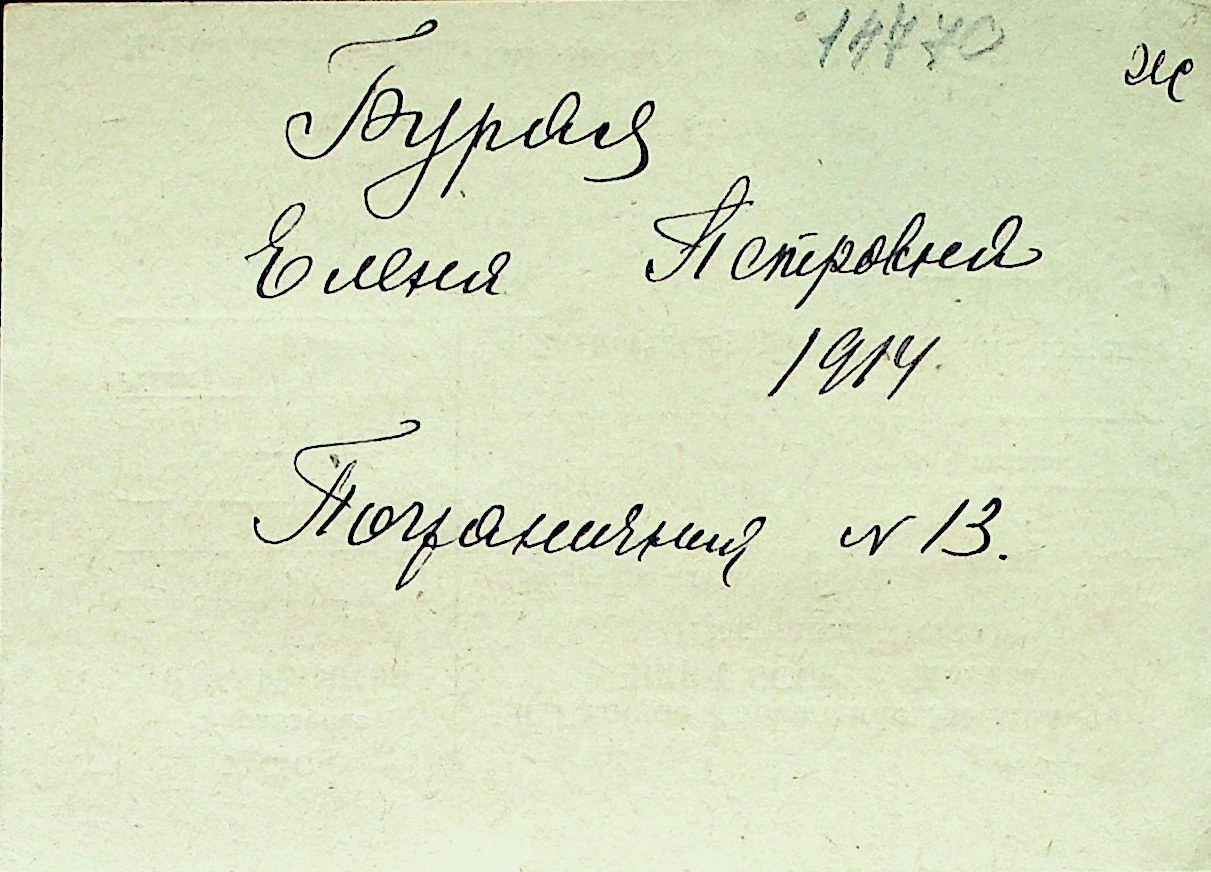 14470 ж
Бурая
Елена Петровна
1914
Пограничная N 13.